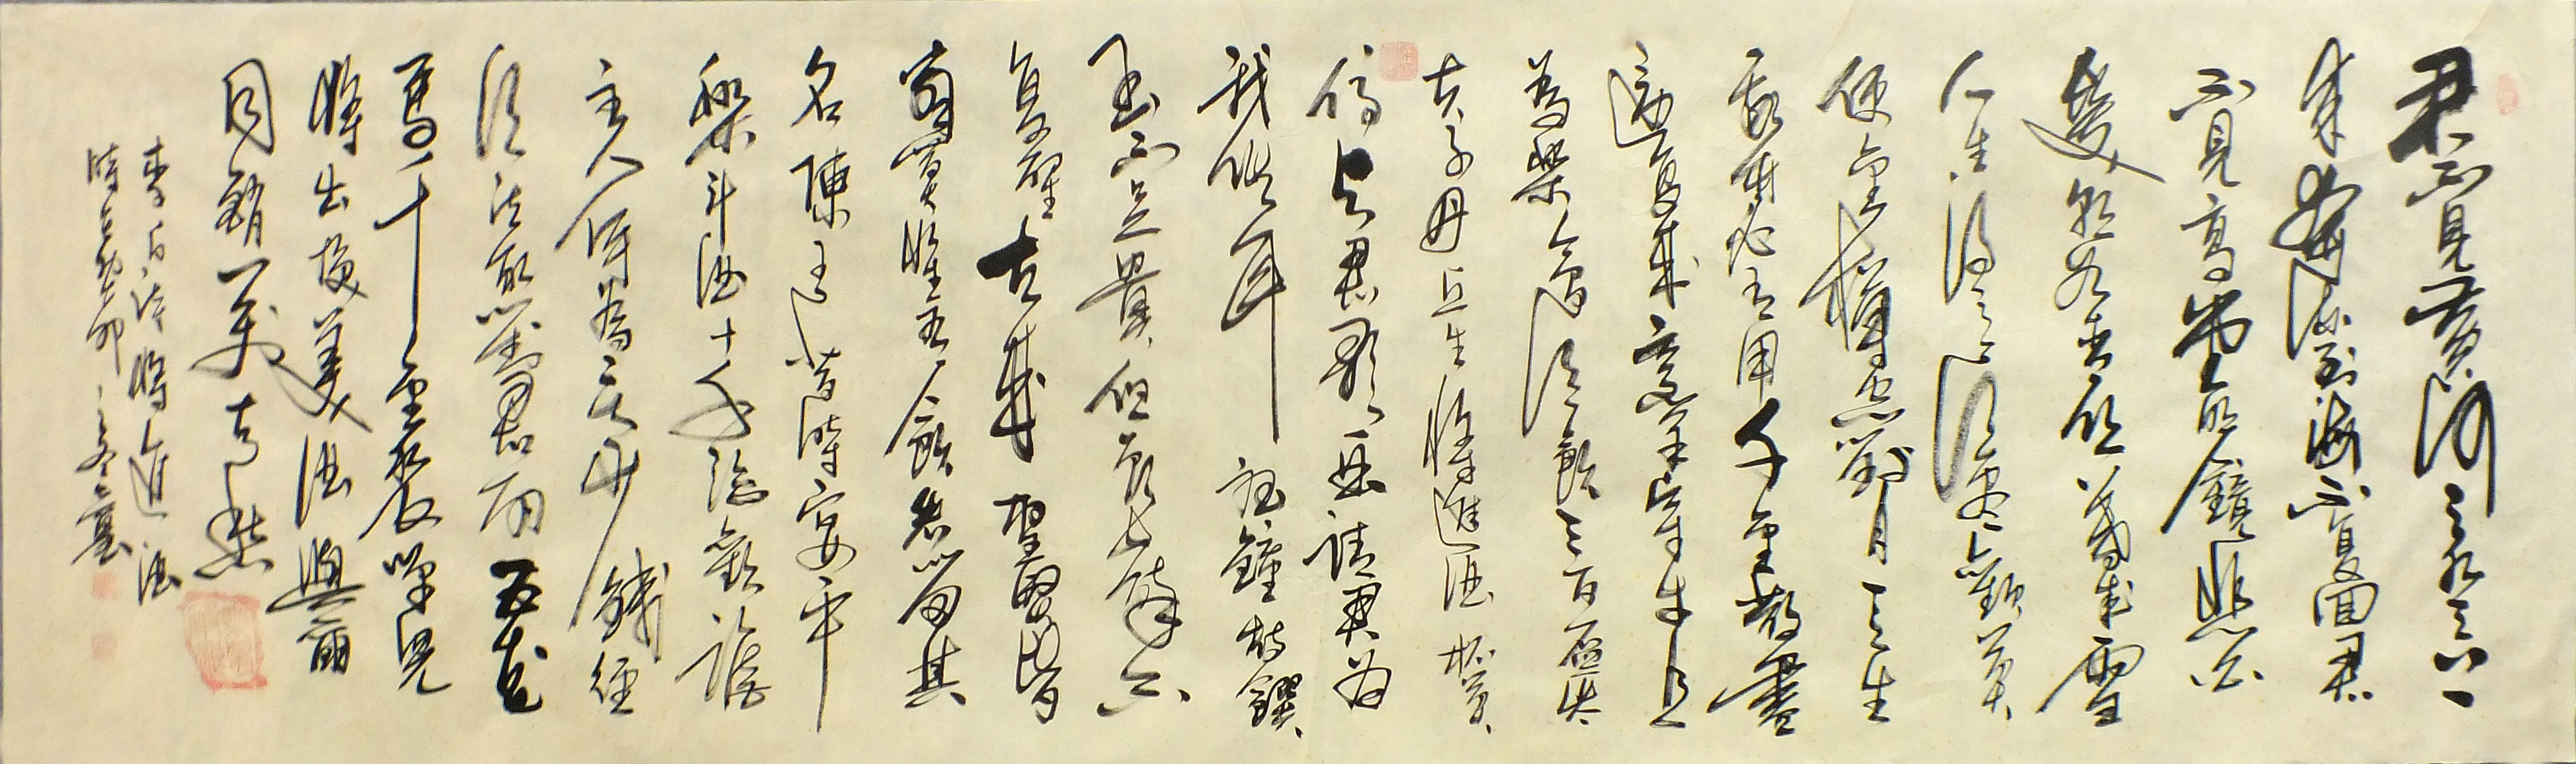 君不見黃河之水天上
來奔流到海不復回君
不見高堂明鏡悲白
髮朝如青絲暮成雪
人生得意須盡歡莫
使金樽空對月天生
我材必有用千金散盡
還復來烹羊宰牛且
為樂會須一飲三百杯岑
夫子丹丘生將進酒杯莫
停與君歌一曲請君為
我耳聽鐘鼓饌
玉不足貴但願長醉不
復醒古來聖賢皆
寂寞惟有飲者留其
名陳王昔時宴平
樂斗酒十千恣歡謔
主人何為言少錢徑
須沽取對君酌五花
馬千金裘呼兒
將出換美酒與爾
同銷萬古愁
李白詩將進酒
時